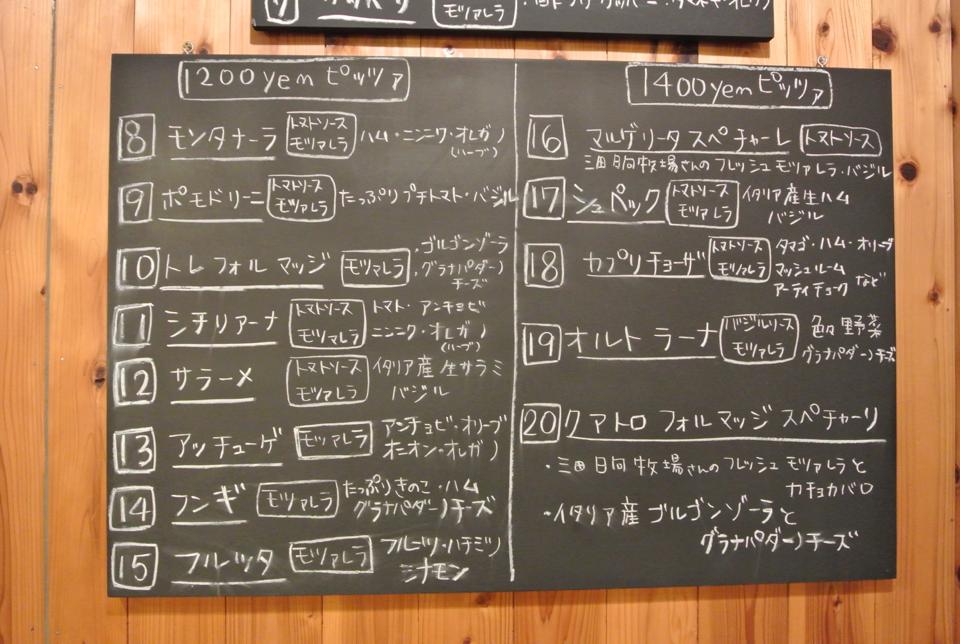 モッツァレラ
1200yen ピッツァ
8 モンタナーラ トマトソース モッツァレラ ハム・ニンニク・オレガノ
(ハーブ)
9 ポモドリーニ トマトソース モッツァレラ たっぷりプチトマト・バジル
10 トレ フォル マッジ モッツァレラ ・ゴルゴンゾーラ
・グラナパダーノ
チーズ
11 シチリアーナ トマトソース モッツァレラ トマト・アンチョビ
ニンニク・オレガノ
(ハーブ)
12 サラーメ トマトソース モッツァレラ イタリア産 生サラミ
バジル
13 アッチューゲ モッツァレラ アンチョビ・オリーブ
オニオン・オレガノ
14 フンギ モッツァレラ たっぷりきのこ・ハム
グラナパダーノチーズ
15 フルッタ モッツァレラ フルーツ・ハチミツ
シナモン
1400yen ピッツァ
16 マルゲリータ スペチャーレ トマトソース
三田日向牧場さんのフレッシュモッツァレラ・バジル
17 シュペック トマトソース モッツァレラ イタリア産生ハム
バジル
18 カプリチョーザ トマトソース モッツァレラ タマゴ・ハム・オリーブ
マッシュルーム
アーティチョーク など
19 オルト ラーナ バジルソース モッツァレラ 色々野菜
グラナパダーノチーズ
20 クアトロ フォルマッジ スペチャーリ
・三田日向牧場さんのフレッシュ モッツァレラと
カチョカバロ
・イタリア産 ゴルゴンゾーラと
グラナパダーノチーズ